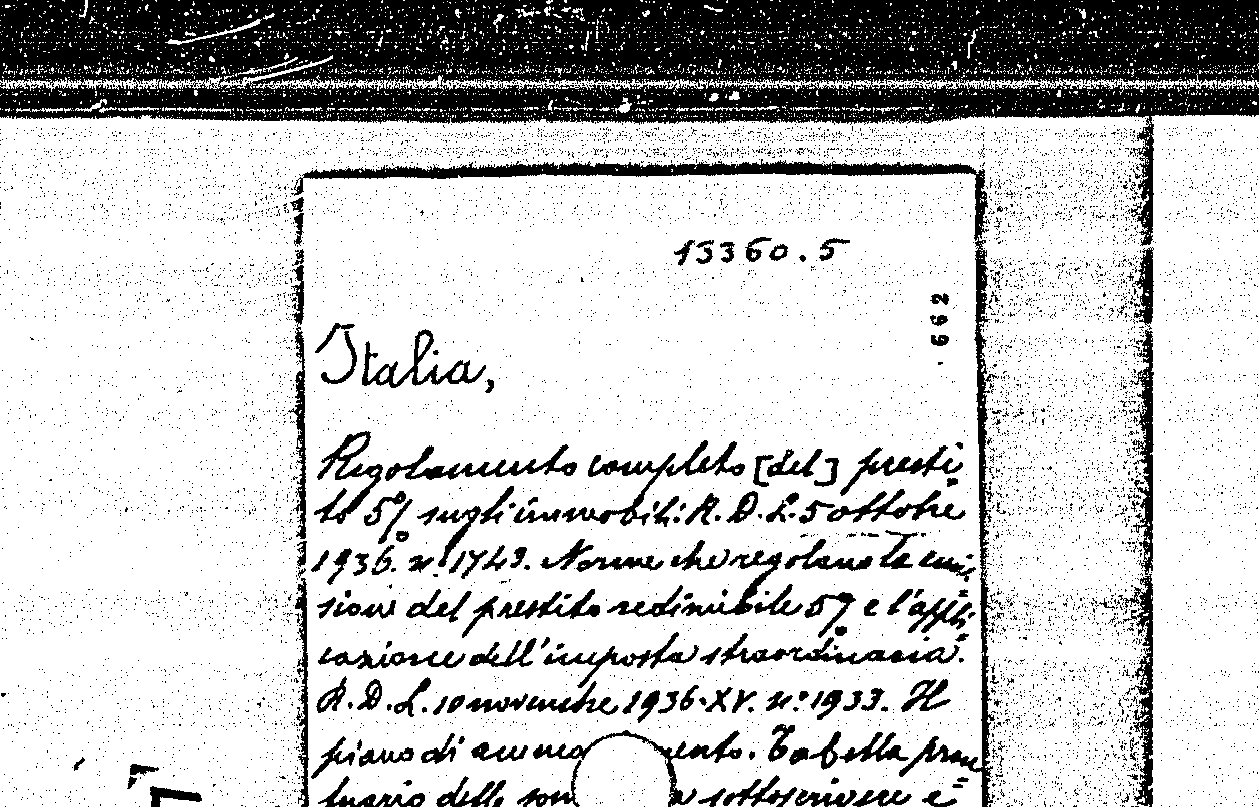 13360.5
662
Italia,
Regolamento completo [del] presti
to 5% sugli immobili: R. D. L. 5 ottobre
1936. n. 1743. Norme che regolano la emi=
sione del prestito redimibile 5% e l'appli=
cazione dell'imposta straordinaria.
R. D. L. 10 novembre 1936-XV. n. 1933. Il
piano di ammo ento. Tabella pron=
tuario delle som a sottoscrivere e